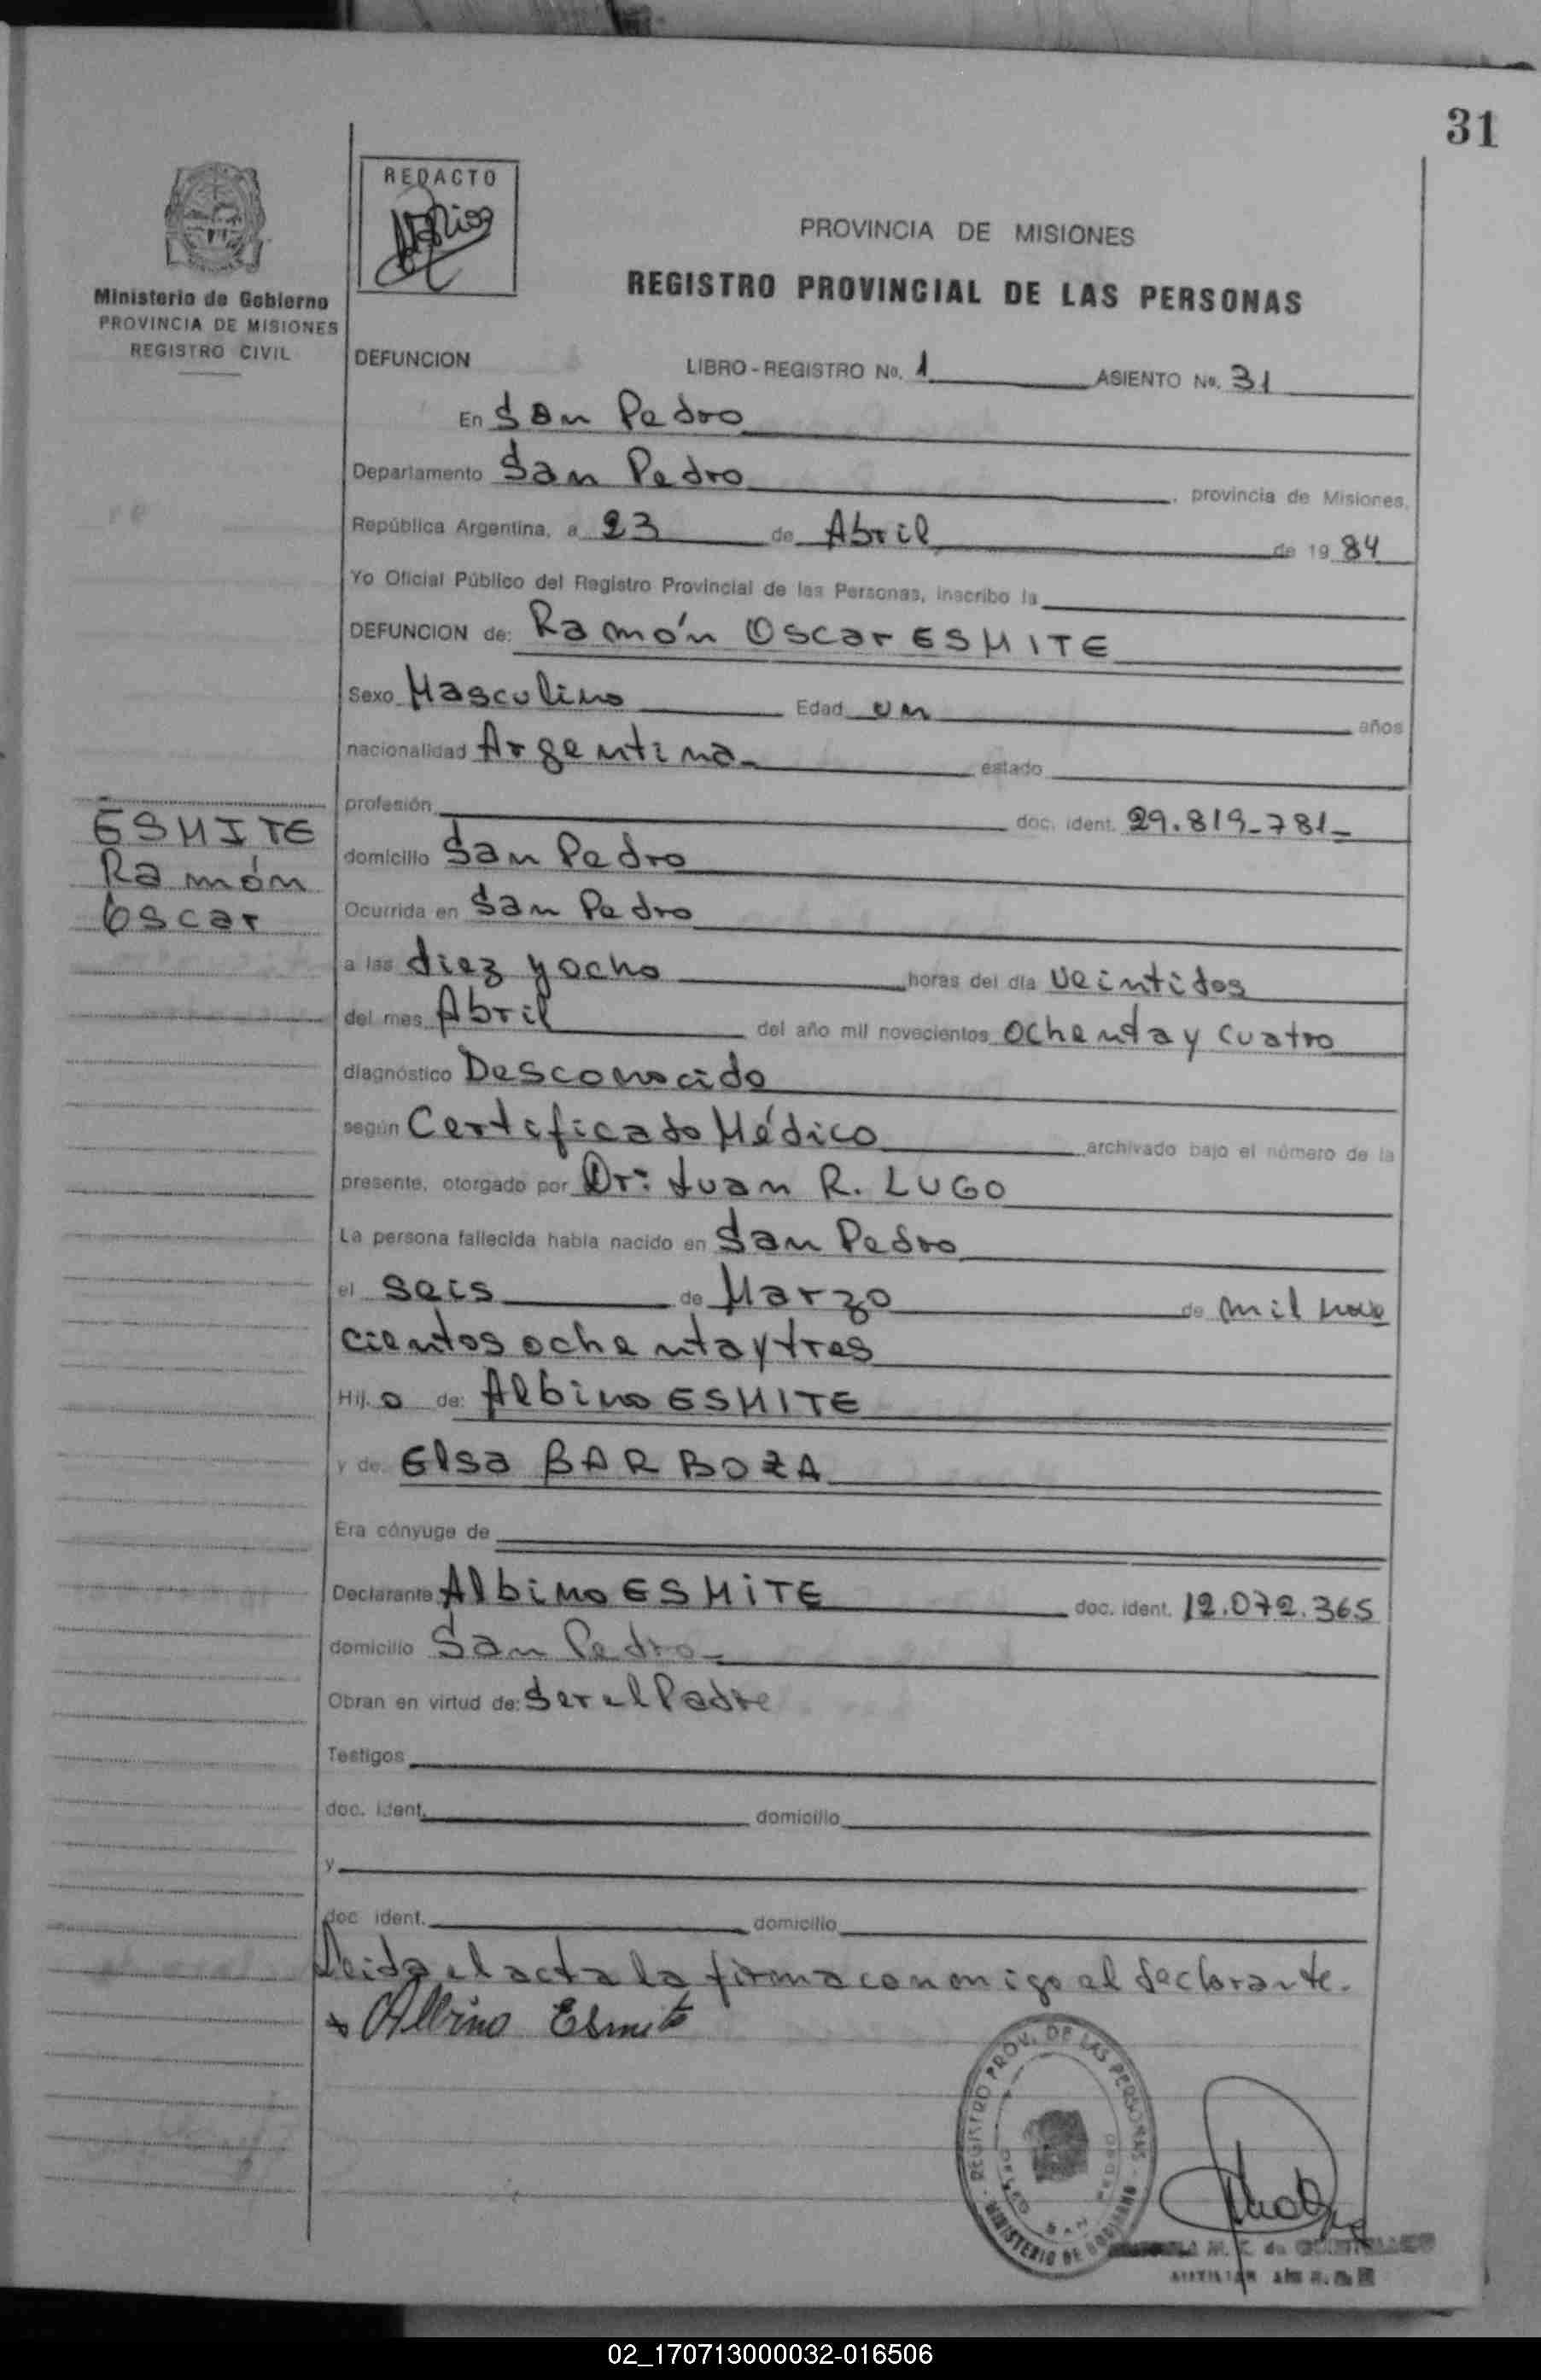 31
REDACTO
PROVINCIA DE MISIONES
REGISTRO PROVINCIAL DE LAS PERSONAS
Ministerio de Gobierno
PROVINCIA DE MISIONES
REGISTRO CIVIL
DEFUNCION LIBRO-REGISTRO No. 1 ASIENTO No. 31
En San Pedro
Departamento San Pedro, provincia de Misiones,
República Argentina, a 23 de Abril de 1984
Yo Oficial Público del Registro Provincial de las Personas, inscribo la
DEFUNCION de: Ramón Oscar ESMITE
Sexo Masculino Edad un años
nacionalidad Argentina estado
profesión doc. ident. 29.819-781-
ESMITE
Ramón
Oscar
domicilio San Pedro
Ocurrida en San Pedro
a las diez y ocho horas del día veintidos
del mes Abril del año mil novecientos ochenta y cuatro
diagnóstico Desconocido
según Certificado Médico archivado bajo el número de la
presente, otorgado por Dr: Juan R. LUGO
La persona fallecida había nacido en San Pedro
el seis de Marzo de mil nove
cientos ochenta y tres
Hij. o de: Albino ESMITE
y de Elsa BARBOZA
Era cónyuge de
Declarante Albino ESMITE doc. ident. 12.072.365
domicilio San Pedro
Obran en virtud de: Ser el Padre
Testigos
doc. ident. domicilio
y
doc ident. domicilio
Leida el acta la firma conmigo el declarante.
Albino Esmite
REGISTRO PROV. DE LAS PERSONAS
MINISTERIO DE GOBIERNO
AUXILIAR
02_170713000032-016506